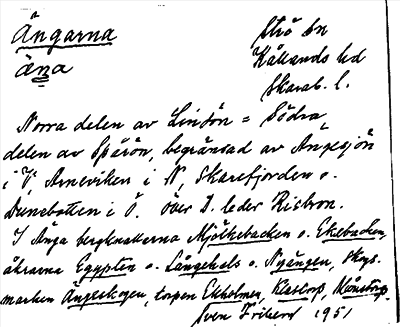 Ängarna
Strö sn
äŋa
Kållands hd
Skarab. l.
Norra delen av Lindön = Södra
delen av Spårön, begränsad av Ängsjön
i V, Arneviken i N, Skarefjorden o.
i Ö. Över D. leder Risbron.
I Änga bergknallarna Mjölkebacken o. Ekebacken,
åkrarna Egypten o. Långehals o. Nyängen, skogs-
marken Ängeskogen, torpen Ekholmen, Klastorp,
Sven 1951